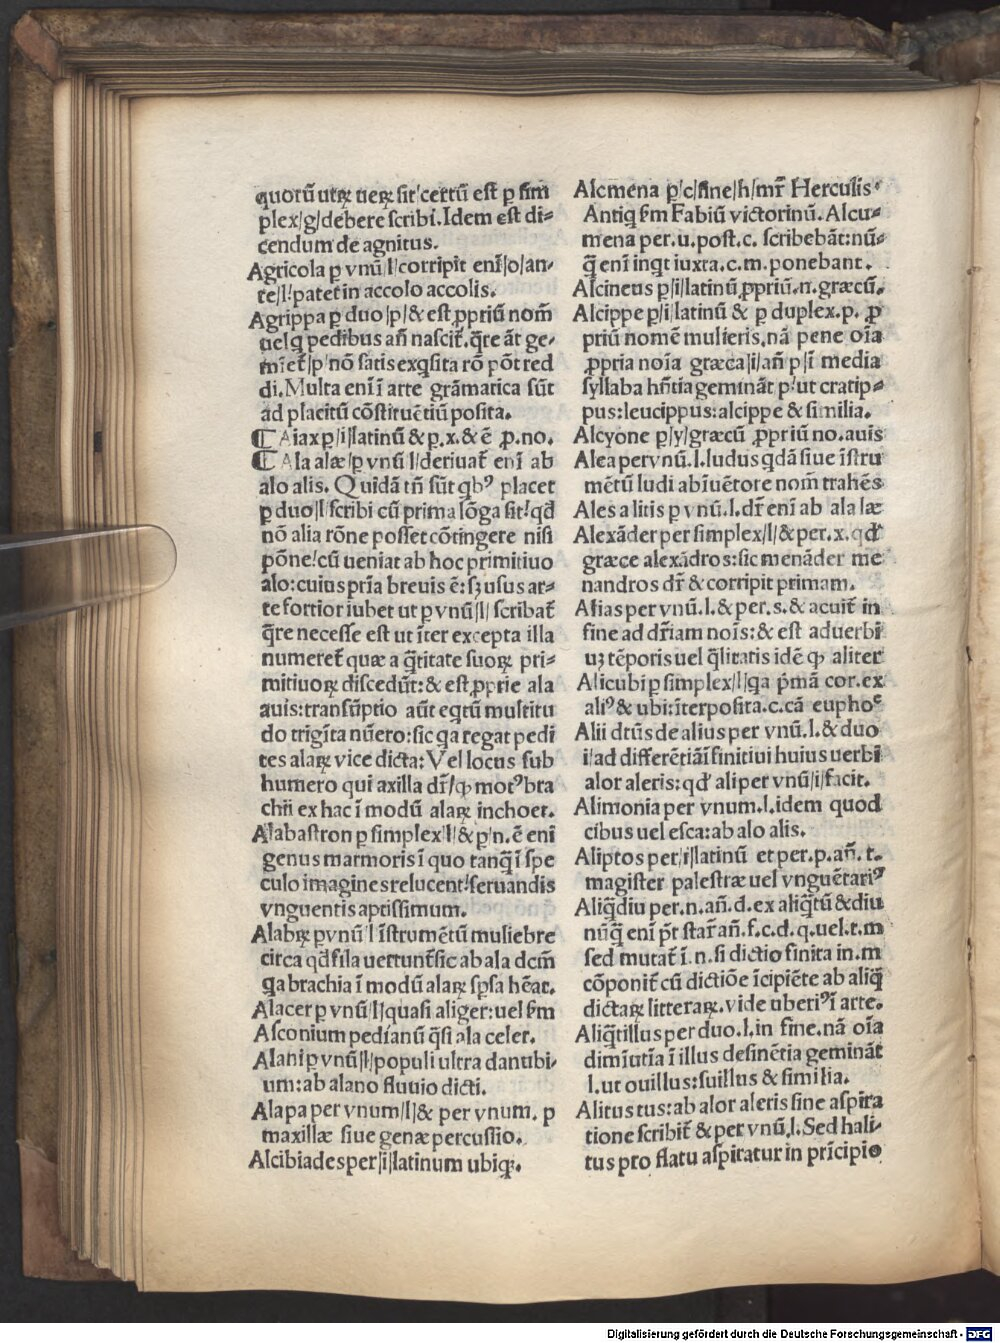 quorū utrꝗ uerꝗ sit certū est ꝑ sim
plex/g/debere scribi. Idem est di⸗
cendum de agnitus.
Agricola ꝑ vnū/l/corripit enī/o/an⸗
te/l/patet in accolo accolis.
Agrippa ꝑ duo/p/& est ꝓpriū nom̄
uel q pedibus an̄ nascit̄. q̄re āt ge⸗
mīet̄/p/nō satis exq̇sita rō pōt red
di. Multa enī ī arte grāmatica sūt
ad placitū cōstituētiū posita.
⸿ Aiax ꝑ/i/latinū & ꝑ.x.& ē ꝓ.no.
⸿ Ala alæ/ꝑ vnū/l/deriuat̄ enī ab
alo alis. Quidā tn̄ sūt qbꝰ placet
ꝑ duo/l/scribi cū prima lōga sit/qd̄
nō alia rōne posset cōtingere nisi
pōne/cū ueniat ab hoc primitiuo
alo: cuius pr̄ia breuis ē: sꝫ usus ar⸗
te fortior iubet ut ꝑ vnū/l/ scribat̄
q̄re necesse est ut īter excepta illa
numeret̄ quæ a q̄titate suoꝝ pri⸗
mitiuoꝝ discedūt: & est ꝓprie ala
auis: transūptio aūt eqtū multitu
do trigīta nūero: sic qa regat pedi
tes alaꝝ vice dicta: Vel locus sub
humero qui axilla dr̄/ꝙ motꝰ bra
chii ex hac ī modū alaꝝ inchoet.
Alabastron ꝑ simplex/l/& ꝑ/n. ē enī
genus marmoris ī quo tanq̄ ī spe
culo imagines relucent/seruandis
vnguentis aptissimum.
Alabꝝ ꝑ vnū/l īstrumētū muliebre
circa qd̄ fila uertunt̄ sic ab ala dcm̄
qa brachia ī modū alaꝝ sp̄sa hēat.
Alacer ꝑ vnū/l/quasi aliger: uel ẜm
Asconium pedianū q̄si ala celer.
Alani ꝑ vnū/l/populi ultra danubi⸗
um: ab alano fluuio dicti.
Alapa per vnum/l/& per vnum. p
maxillæ siue genæ percussio.
Alcibiades per/i/latinum ubiqꝫ.
Alcmena ꝑ/c/sine/h/mr̄ Herculis
Antiq ẜm Fabiū victorinū. Alcu⸗
mena per.u.post.c. scribebāt: nū⸗
q̄ enī inqt iuxta.c.m.ponebant.
Alcineus ꝑ/i/latinū ꝓpriū.n.græcū.
Alcippe ꝑ/i/latinū & ꝑ duplex.p. ꝓ
priū nomē mulieris, nā pene oīa
ꝓpria noīa græca/i/an̄ p/ī media
syllaba hn̄tia gemināt p/ut cratip⸗
pus: leucippus: alcippe & similia.
Alcyone ꝑ/y/græcū ꝓpriū no. auis
Alea per vnū.l.ludus qdā siue īstru
mētū ludi ab īuētore nom̄ trahēs
Ales alitis ꝑ vnū.l.dr̄ enī ab ala læ
Alexāder per simplex/l/& per.x.qd̄
græce alexādros: sic menāder me
nandros dr̄ & corripit primam.
Alias per vnū.l.& per.s.& acuit̄ in
fine ad dr̄iam noīs: & est aduerbi
uꝫ tēporis uel q̄litatis idē ꝙ aliter
Alicubi ꝑ simplex/l/qa p̄mā cor. ex
aliꝰ & ubi: īterposita.c.cā eupho
Alii dtūs de alius per vnū.l.& duo
i/ad differētiā īfinitiui huius uerbi
alor aleris: qd̄ ali per vnū/i/facit.
Alimonia per vnum.l.idem quod
cibus uel esca: ab alo alis.
Aliptos per/i/latinū et per.p.an̄.t.
magister palestræ uel vnguētariꝰ
Aliq̄diu per.n.an̄.d.ex aliq̄tū & diu
nūq̄ enī pr̄t star̄ an̄.f.c.d.q.uel.t.m
sed mutat̄ ī.n.si dictio finita in.m
cōponit̄ cū dictiōe īcipiēte ab aliq̄
dictaꝝ litteraꝝ. vide uberiꝰ ī arte.
Aliq̄tillus per duo.l.in fine. nā oīa
dimīutīa ī illus desinētia gemināt
l.ut ouillus: suillus & similia.
Alitus tus: ab alor aleris sine aspira
tione scribit̄ & per vnū.l. Sed hali⸗
tus pro flatu aspiratur in prīcipio
Digitalisierung gefördert durch die Deutsche Forschungsgemeinschaft - DFG